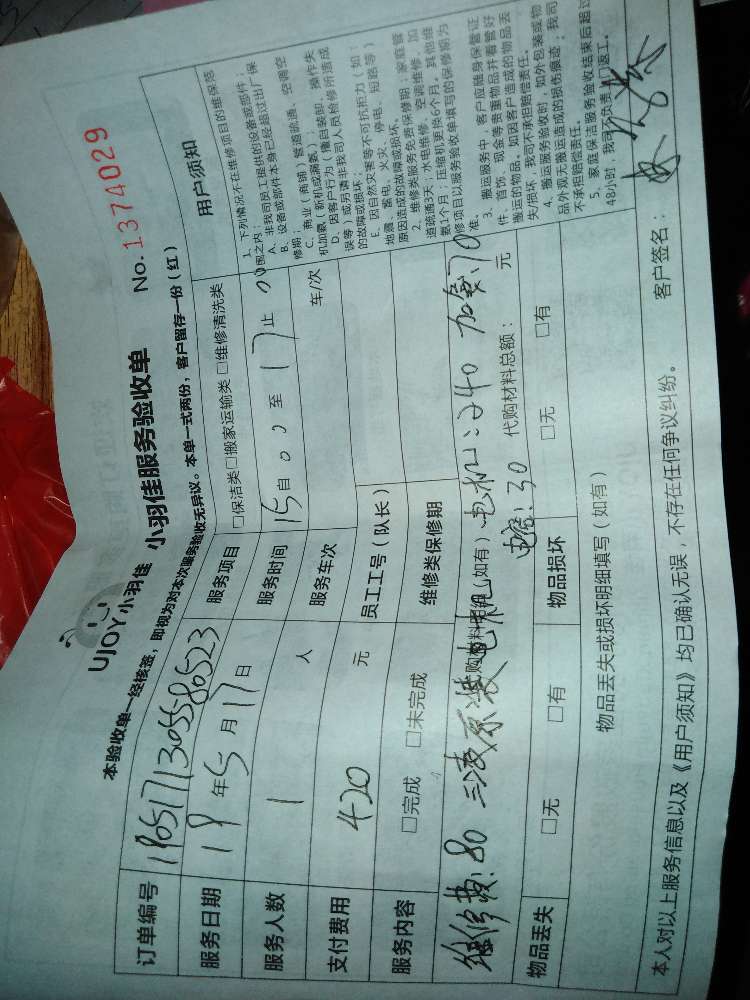 UJOY小羽佳 小羽佳服务验收单 No. 1374029
本验收单一经核签，即视为对本次服务验收无异议。本单一式两份，客户留存一份（红）
订单编号 190517130558 0523
服务项目 □保洁类□搬家运输类 □维修清洗类
服务日期 19年5月17日
服务时间 15自00至17止00
服务人数 1 人
服务车次 车/次
支付费用 420 元
员工工号（队长）
服务内容 □完成 □未完成
维修类保修期
维修费：80 三凌原装电机：240 加氟：70
代购材料明细（如有）
电容：30 代购材料总额： 元
物品丢失 □无 □有
物品损坏 □无 □有
物品丢失或损坏明细填写（如有）
用户须知
1、下列情况不在维修项目的维保范
围之内：
A、非我司员工提供的设备或部件；
B、设备或部件本身已经超过出厂保
修期；
C、商业（商铺）管道疏通、空调空
机加氟（新机或漏氟）；
D、因客户行为（擅自装卸、操作失
误等）或另请非我司人员检修所造成
的故障或损坏；
E、因自然灾害等不可抗拒力（如：
地震、雷电、火灾、停电、短路等）
原因造成的故障或损坏。
2、维修类服务免费保修期：家庭管
道疏通3天；水电维修、空调维修、加
氟1个月；压缩机更换6个月。其他维
修项目以服务验收单填写的保修期为
准。
3、搬运服务中，客户应随身保管证
件、首饰、现金等贵重物品并看管好
搬运的物品，如因客户造成的物品丢
失/损坏，我司不承担赔偿责任。
4、搬运服务验收时，如外包装或物
品外观无搬运造成的损伤痕迹，我司
不承担赔偿责任。
5、家庭保洁服务验收结束后超过
48小时，我司不负责返工。
本人对以上服务信息以及《用户须知》均已确认无误，不存在任何争议纠纷。 客户签名：